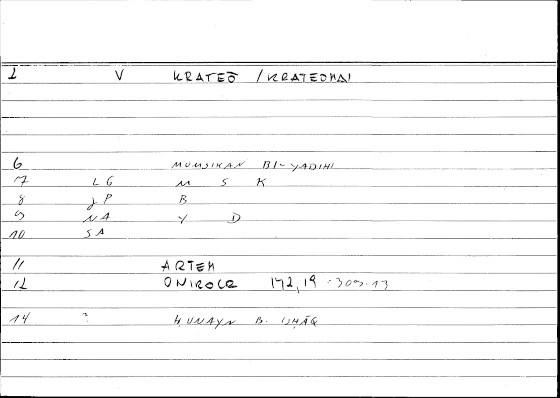 1 V KRATEŌ / KRATEOMAI
6 MUMSIKAN BI-YADIHI
7 LG M S K
8 JP B
9 NA Y D
10 SA
11 ARTEM
12 ONIROCR 172,19 - 309.13
14 ? HUNAYN B. ISHĀQ